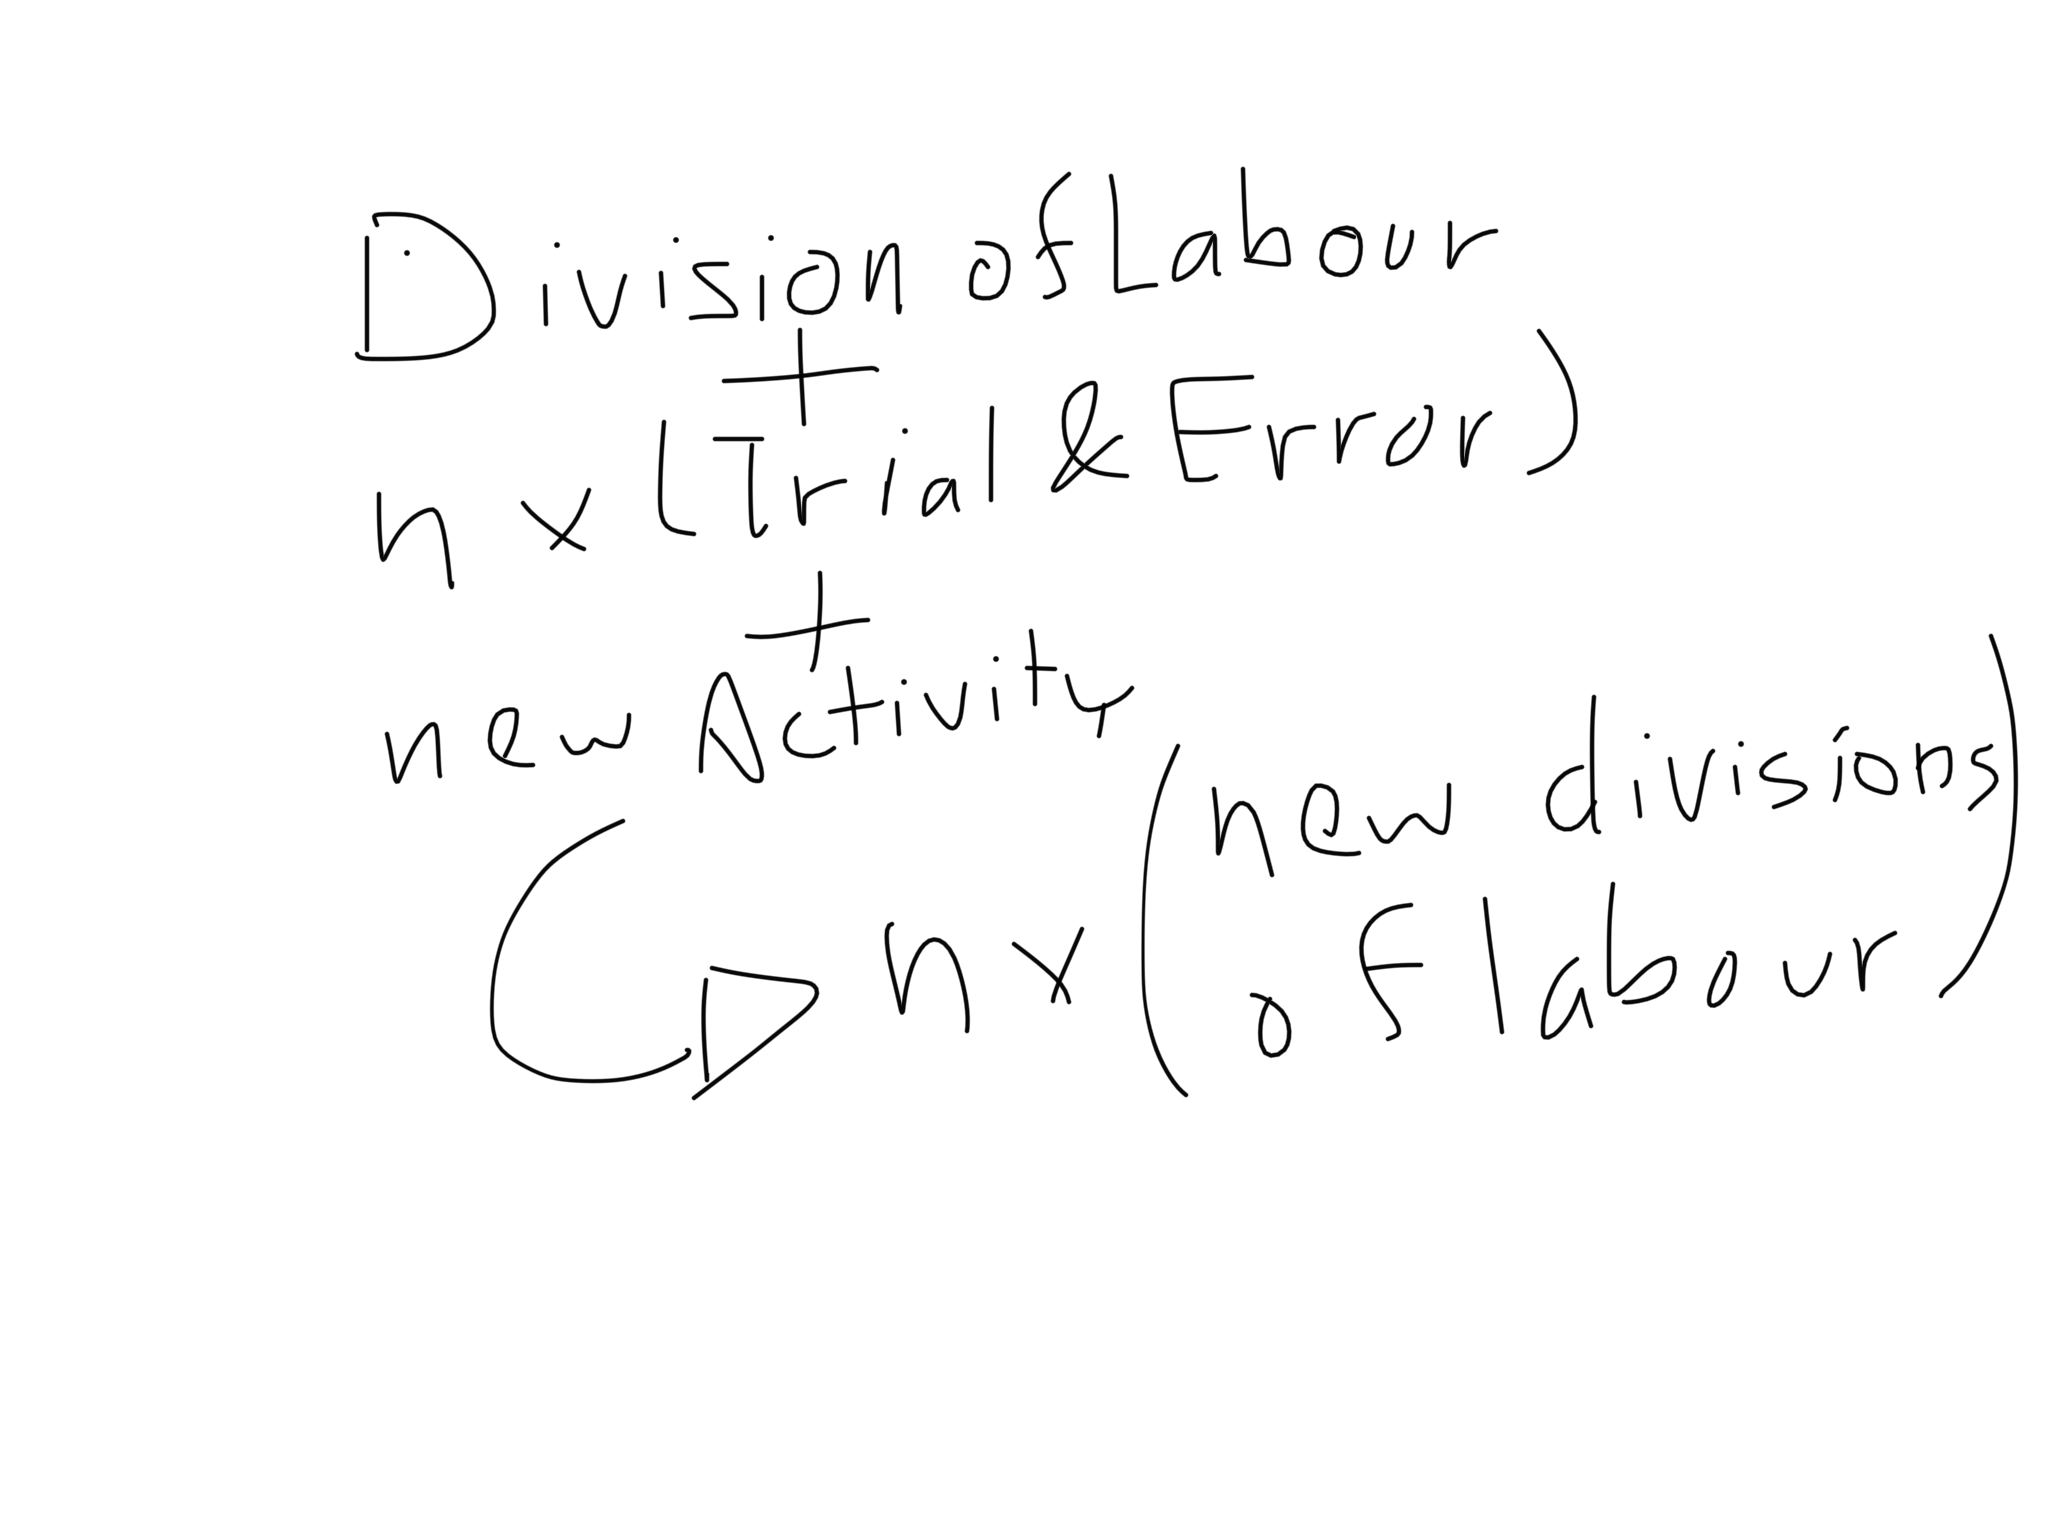 Division of Labour
+
n x (Trial & Error)
+
new Activity
n x (new divisions
of labour)